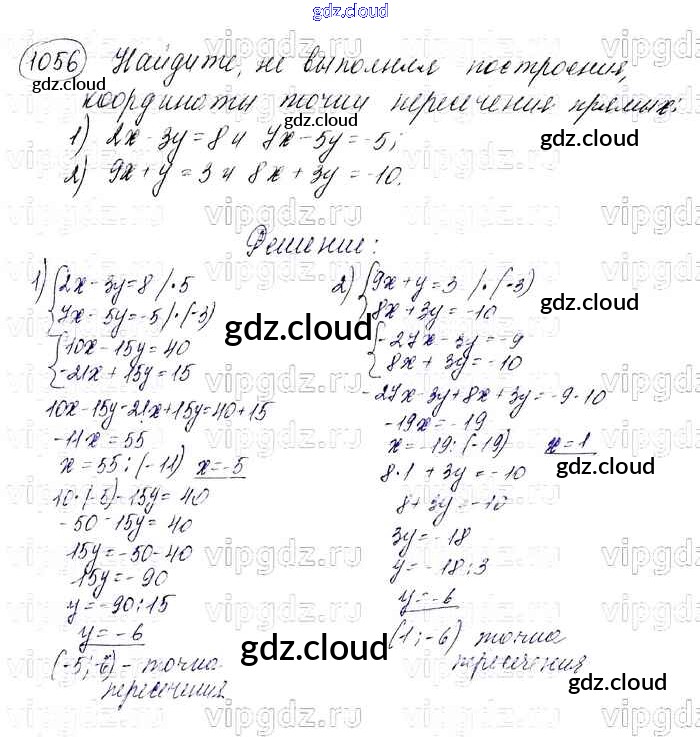 gdz.cloud
1056 Найдите, не выполняя построения,
координаты точки пересечения прямых:
1) 2x - 3y = 8 и 7x - 5y = -5;
2) 9x + y = 3 и 8x + 3y = -10.
Решение:
1) { 2x - 3y = 8 / · 5
7x - 5y = -5 / · (-3)
{ 10x - 15y = 40
-21x + 15y = 15
10x - 15y - 21x + 15y = 40 + 15
-11x = 55
x = 55 : (-11) x = -5
10 · (-5) - 15y = 40
-50 - 15y = 40
15y = -50 - 40
15y = -90
y = -90 : 15
y = -6
(-5; -6) - точка
пересечения
2) { 9x + y = 3 / · (-3)
8x + 3y = -10
{ -27x - 3y = -9
8x + 3y = -10
-27x - 3y + 8x + 3y = -9 - 10
-19x = -19
x = -19 : (-19) x = 1
8 · 1 + 3y = -10
8 + 3y = -10
3y = -18
y = -18 : 3
y = -6
(1; -6) точка
пересечения
gdz.cloud
gdz.cloud
gdz.cloud
gdz.cloud
gdz.cloud
gdz.cloud
gdz.cloud
gdz.cloud
gdz.cloud
vipgdz.ru